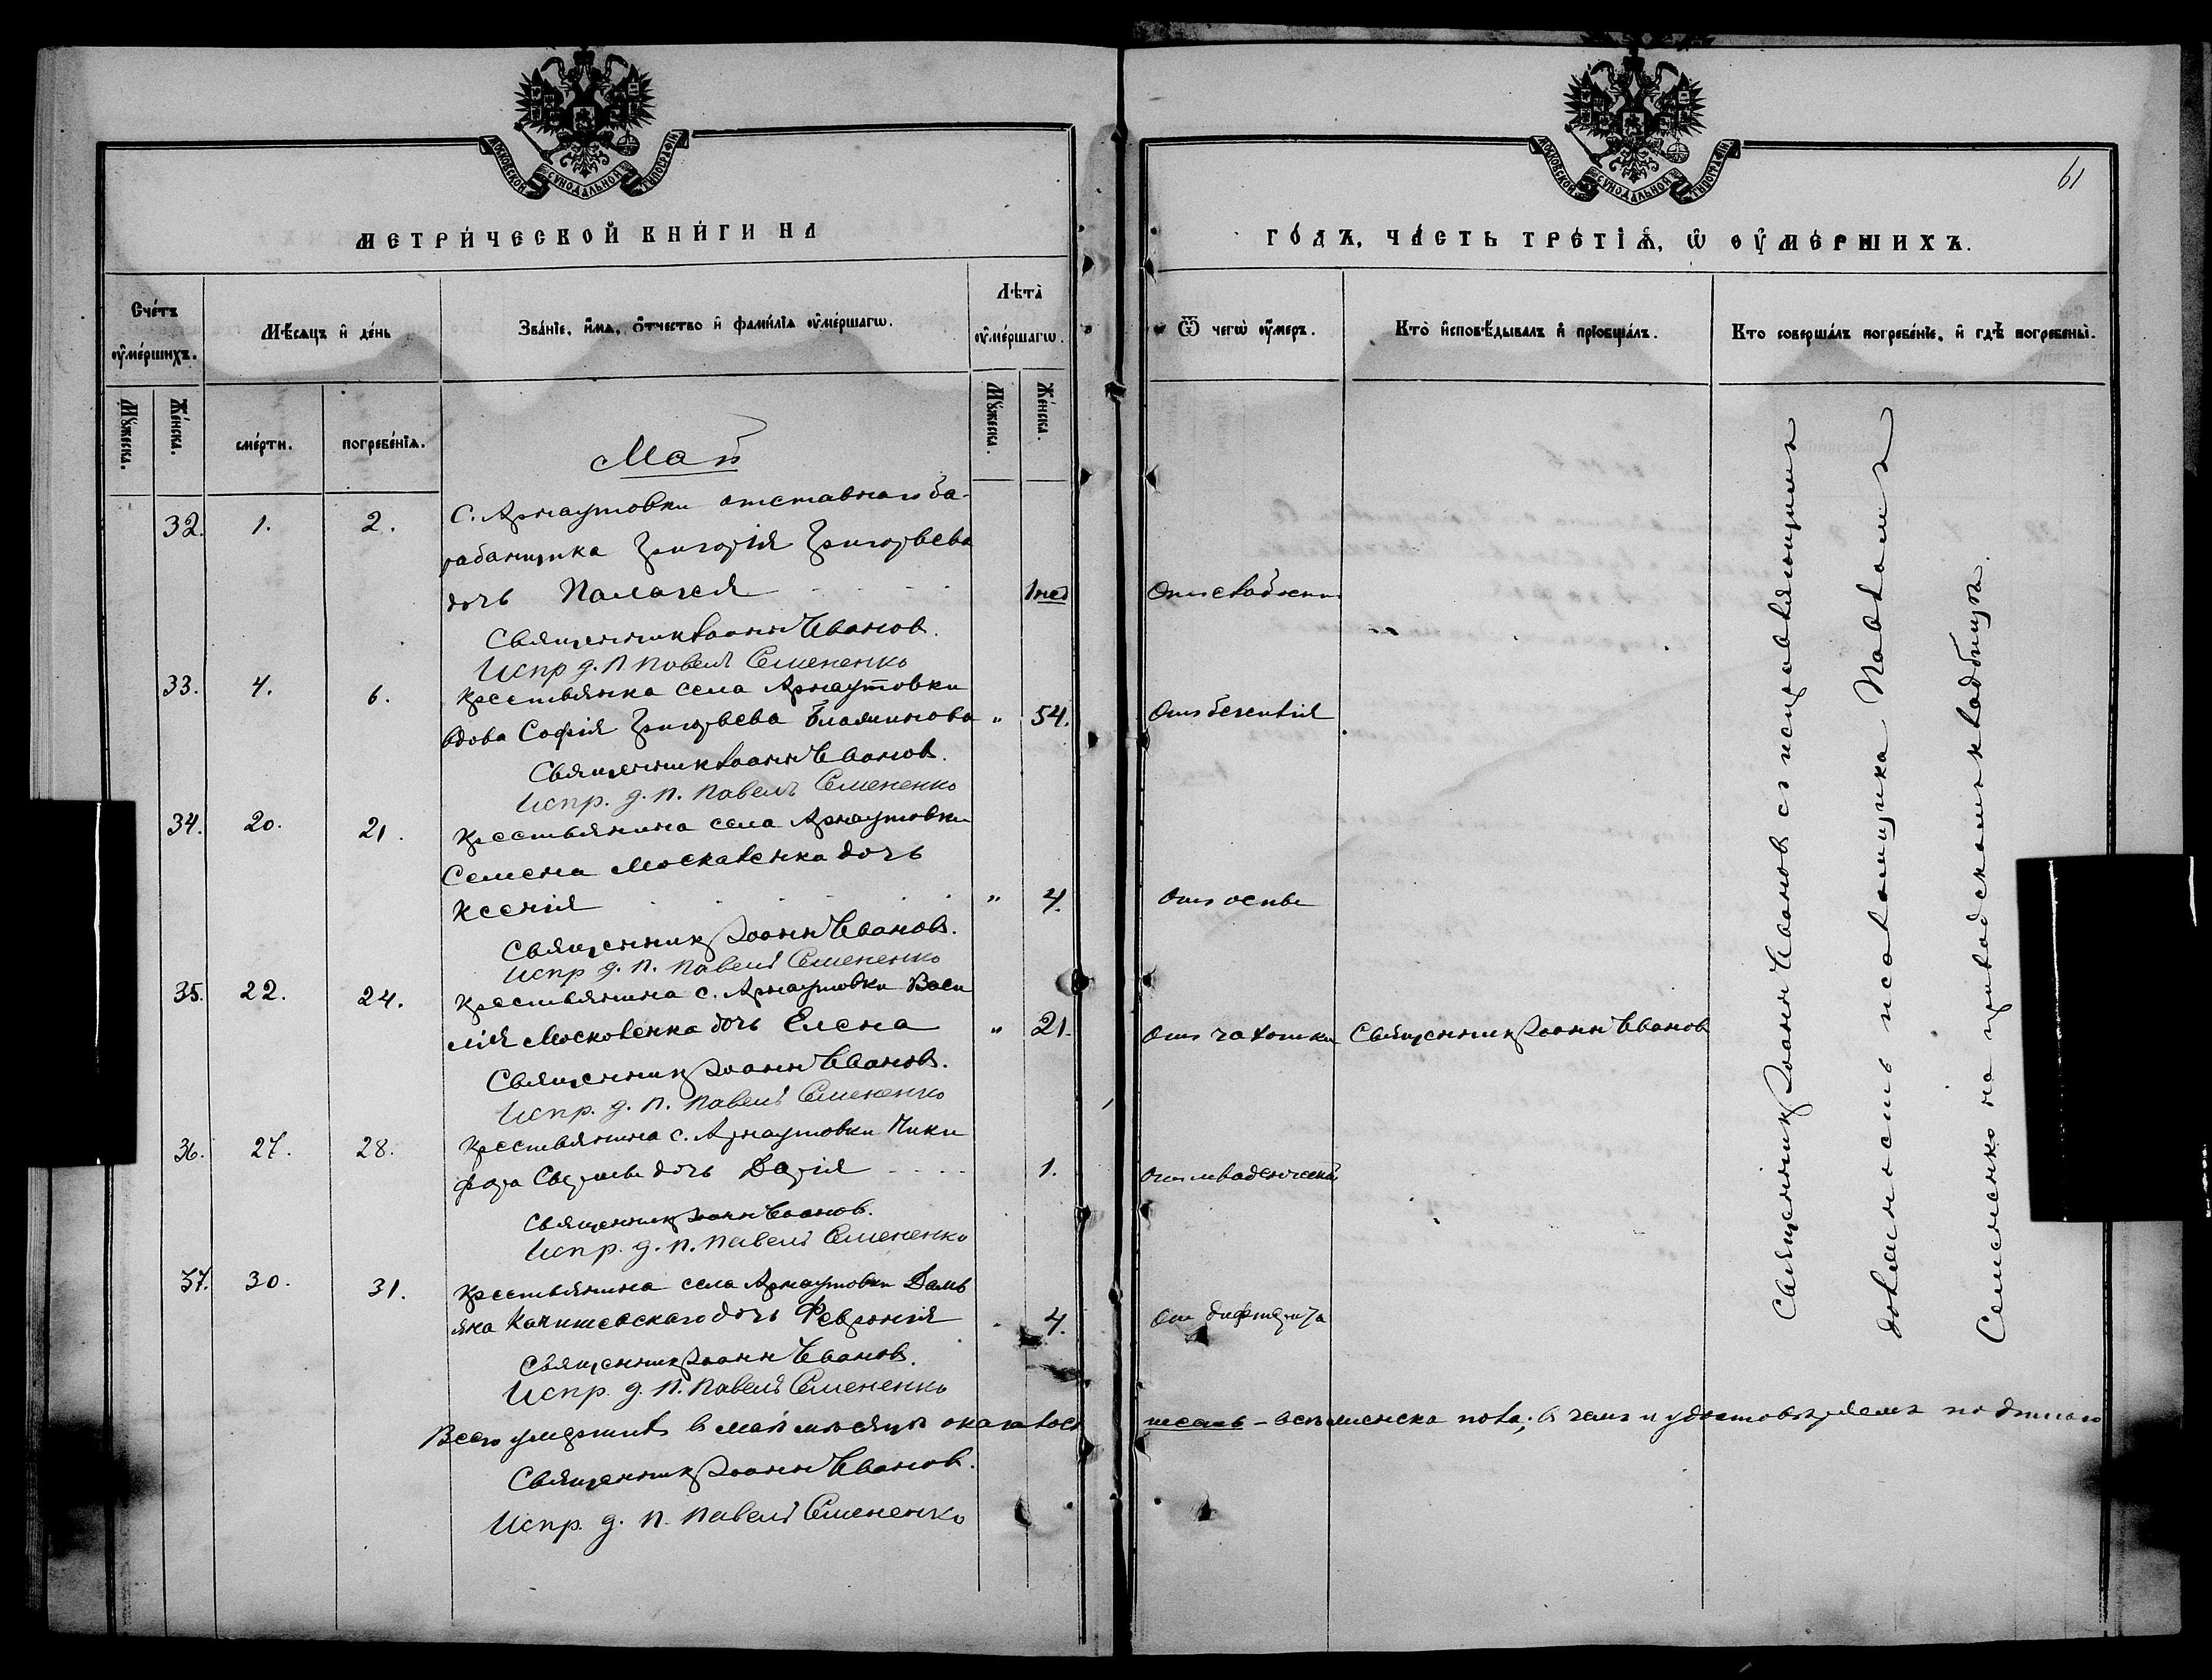 МОСКОВСКОЙ СУНОДАЛЬНОЙ ТИПОГРАФІИ
МЕТРИ́ЧЕСКОЙ КНИ́ГИ НА
Сче́тъ ᲂу҆ме́ршихъ.
Мѣ́сяцъ и҆ де́нь
Зва́нїе, и҆́мѧ, ѻ҆́тчество и҆ фами́лїѧ ᲂу҆ме́ршагѡ.
Лѣ́та ᲂу҆ме́ршагѡ.
Мꙋ́жеска.
Же́нска.
сме́рти.
погребе́нїѧ.
Мꙋ́жеска.
Же́нска.
Май
32. 1. 2. С. Арнаутовки отставного ба-
рабанщика Григорія Григорьева
дочь Палагея 1 нед
Священник Іоанн Иванов.
Испр д. п. Павелъ Семененко
33. 4. 6. Крестьянка села Арнаутовки
вдова Софія Григорьева " 54.
Священник Іоанн Иванов.
Испр. д. п. Павелъ Семененко
34. 20. 21. Крестьянина села Арнаутовки
Семена Москаленка дочь
Ксенія " 4.
Священник Іоанн Иванов.
Испр д. п. Павелъ Семененко
35. 22. 24. Крестьянина с. Арнаутовки Васи
лія Москаленка дочь Елена " 21.
Священник Іоанн Иванов.
Испр. д. п. Павелъ Семененко
36. 27. 28. Крестьянина с. Арнаутовки Ники
фора дочь Дарія 1.
Священник Іоанн Иванов.
Испр. д. п. Павелъ Семененко
37. 30. 31. Крестьянина села Арнаутовки Дамь
яна дочь Февронія 4.
Священник Іоанн Иванов.
Испр. д. п. Павелъ Семененко
Всего умерших в май мѣсяцѣ оказалось
Священник Іоанн Иванов.
Испр. д. п. Павелъ Семененко
МОСКОВСКОЙ СУНОДАЛЬНОЙ ТИПОГРАФІИ
61
ГО́ДЪ, ЧА́СТЬ ТРЕ́ТІѦ, Ѡ ᲂУ҆МЕ́РШИХЪ.
Ѿ чегѡ̀ ᲂу҆́меръ.
Кто̀ и҆сповѣ́дывалъ и҆ прїобща́лъ.
Кто соверша́лъ погребе́нїе, и҆ гдѣ̀ погребены̀.
От слабости
От
От оспы
От чахотки Священник Іоанн Иванов
От младенческой
От дифтерита
шесть – всѣ женска пола; в чем и удостовѣряем подписью
Священник Іоанн Иванов с исправляющим
должность псаломщика Павлом
Семененко на приходском кладбище.